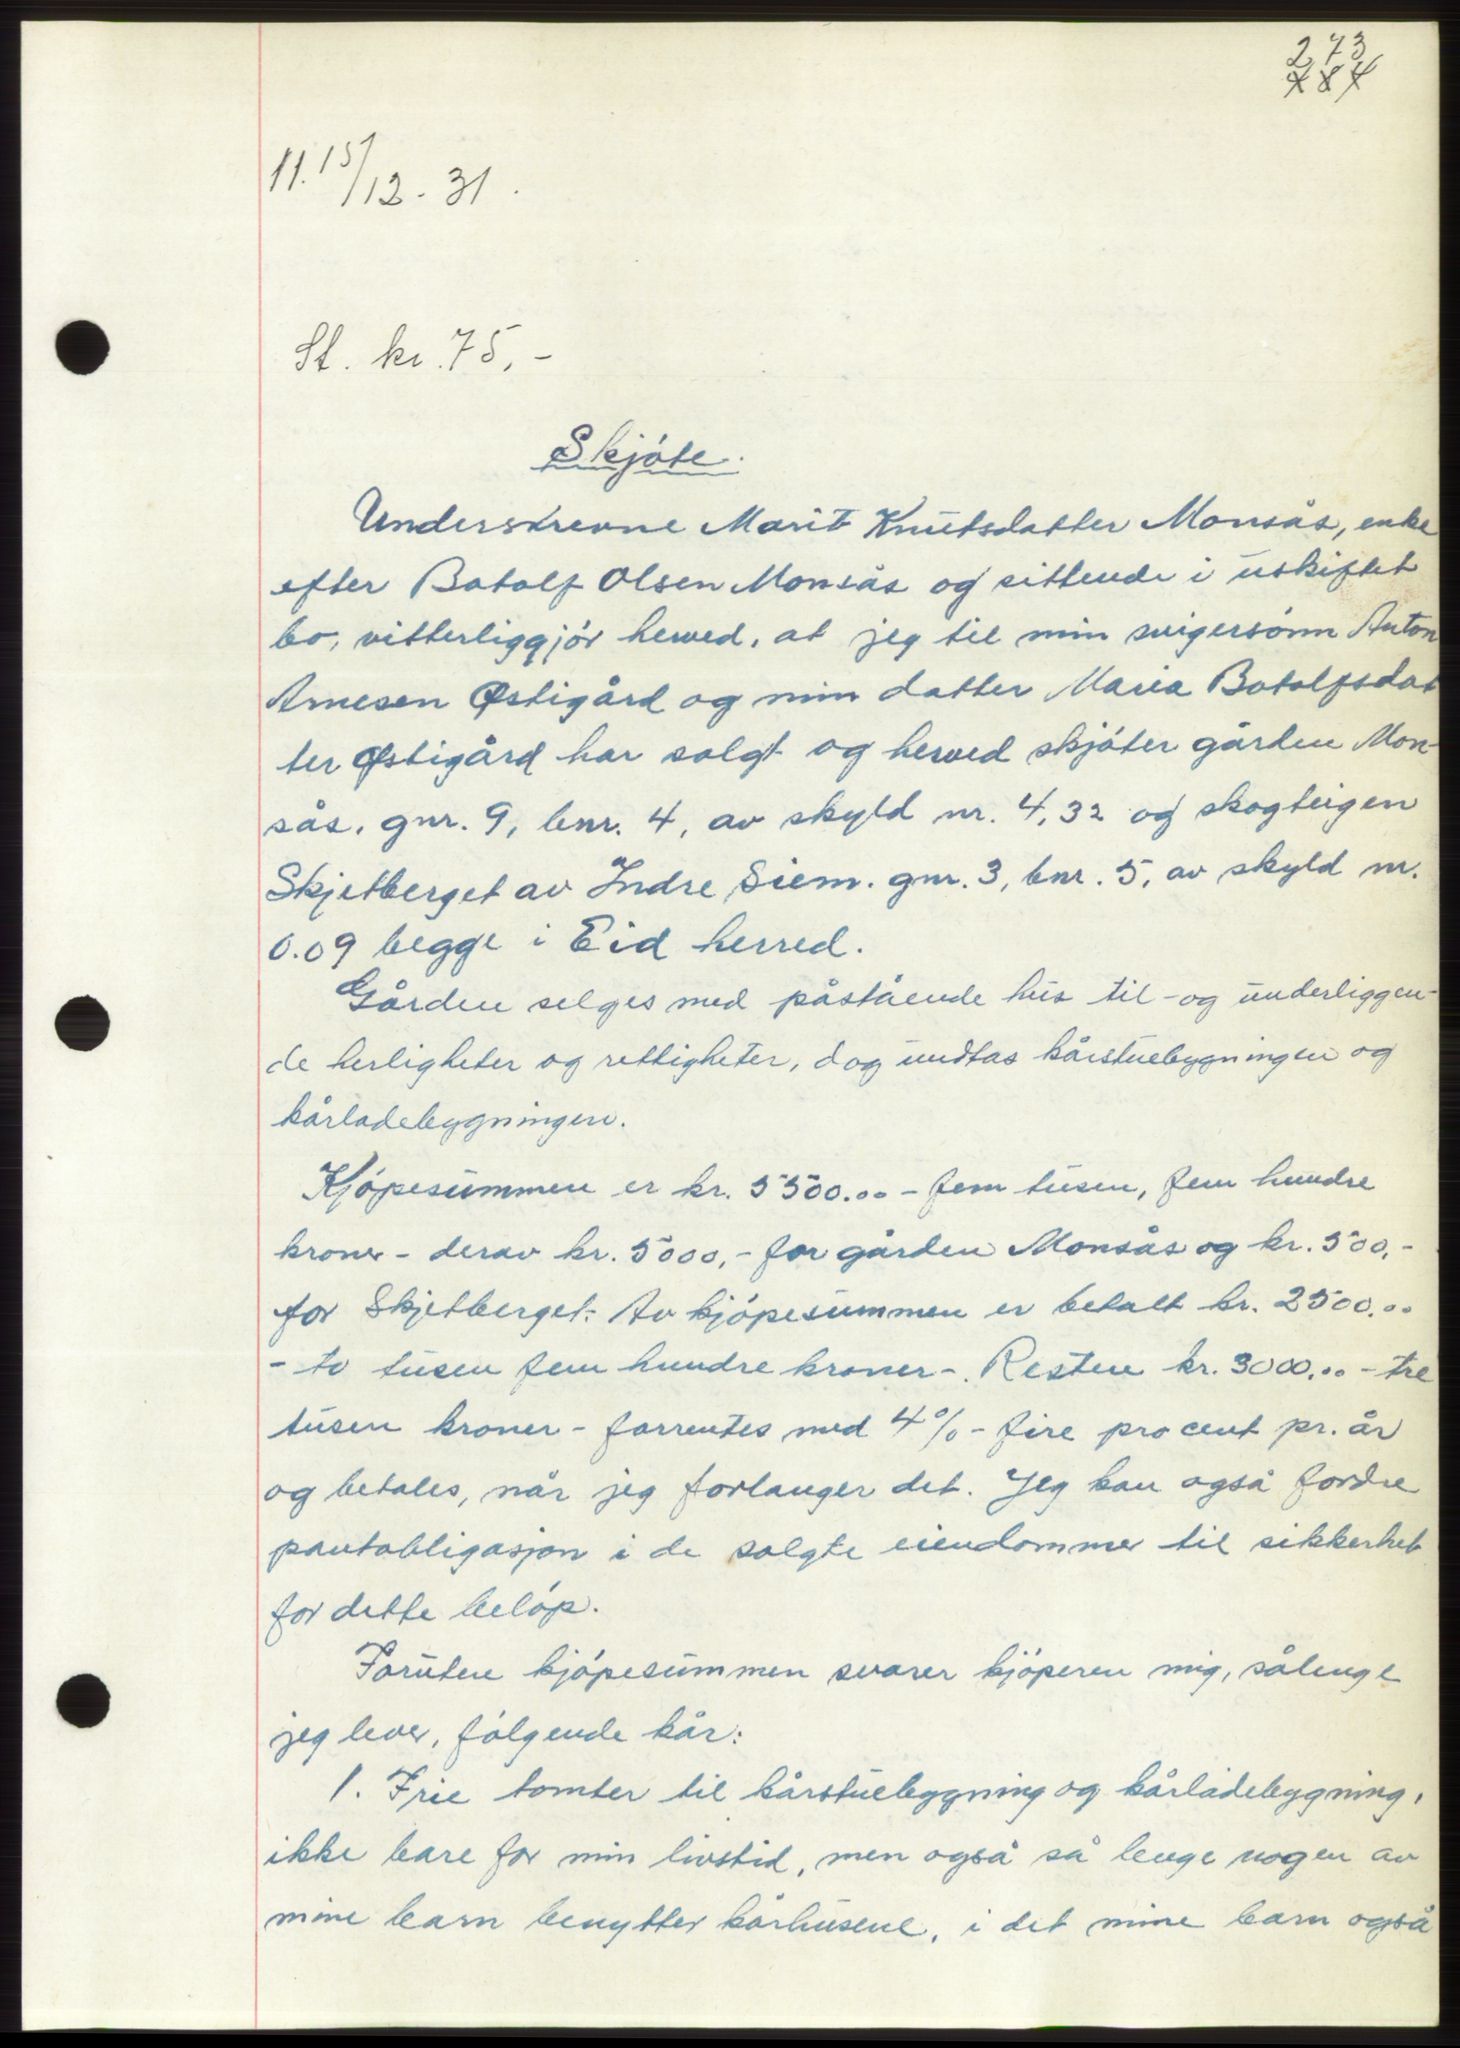 273
484
11. 15/12-31.
St. kr. 75,-
Skjóte.
Underskrevne Marit Knutsdatter Monsås, enke
efter Botolf Olsen Monsås og sittende i uskiftet
bo, vitterliggjór herved, at jeg til min svigersónn Anton
Arnesen Østigård og min datter Maria Botolfsdat
ter Østigård har solgt og herved skjóter gården Mon-
sås, gnr. 9, bnr. 4, av skyld nr. 4,32 og skogteigen
Skjetberget av Indre Siem. gnr. 3, bnr. 5, av skyld nr.
0.09 begge i Eid herred.
Gården selges med påstående hus til- og underliggen-
de herligheter og rettigheter, dog undtas kårstuebygningen og
kårladebygningen.
Kjópesummen er kr. 5500.00 - fem tusen, fem hundre
kroner - derav kr. 5000,- for gården Monsås og kr. 500,-
for Skjetberget. Av kjópesummen er betalt kr. 2500.00
- to tusen fem hundre kroner -. Resten kr. 3000.00 - tre
tusen kroner - forrentes med 4% - fire procent pr. år
og betales, når jeg forlanger det. Jeg kan også fordre
pantobligasjon i de solgte eiendommer til sikkerhet
for dette belóp.
Foruten kjópesummen svarer kjöperen mig, sålenge
jeg lever, fólgende kår:
1. Frie tomter til kårstuebygning og kårladebygning,
ikke bare for min livstid, men også så lenge nogen av
mine barn benytter kårhusene, i det mine barn også